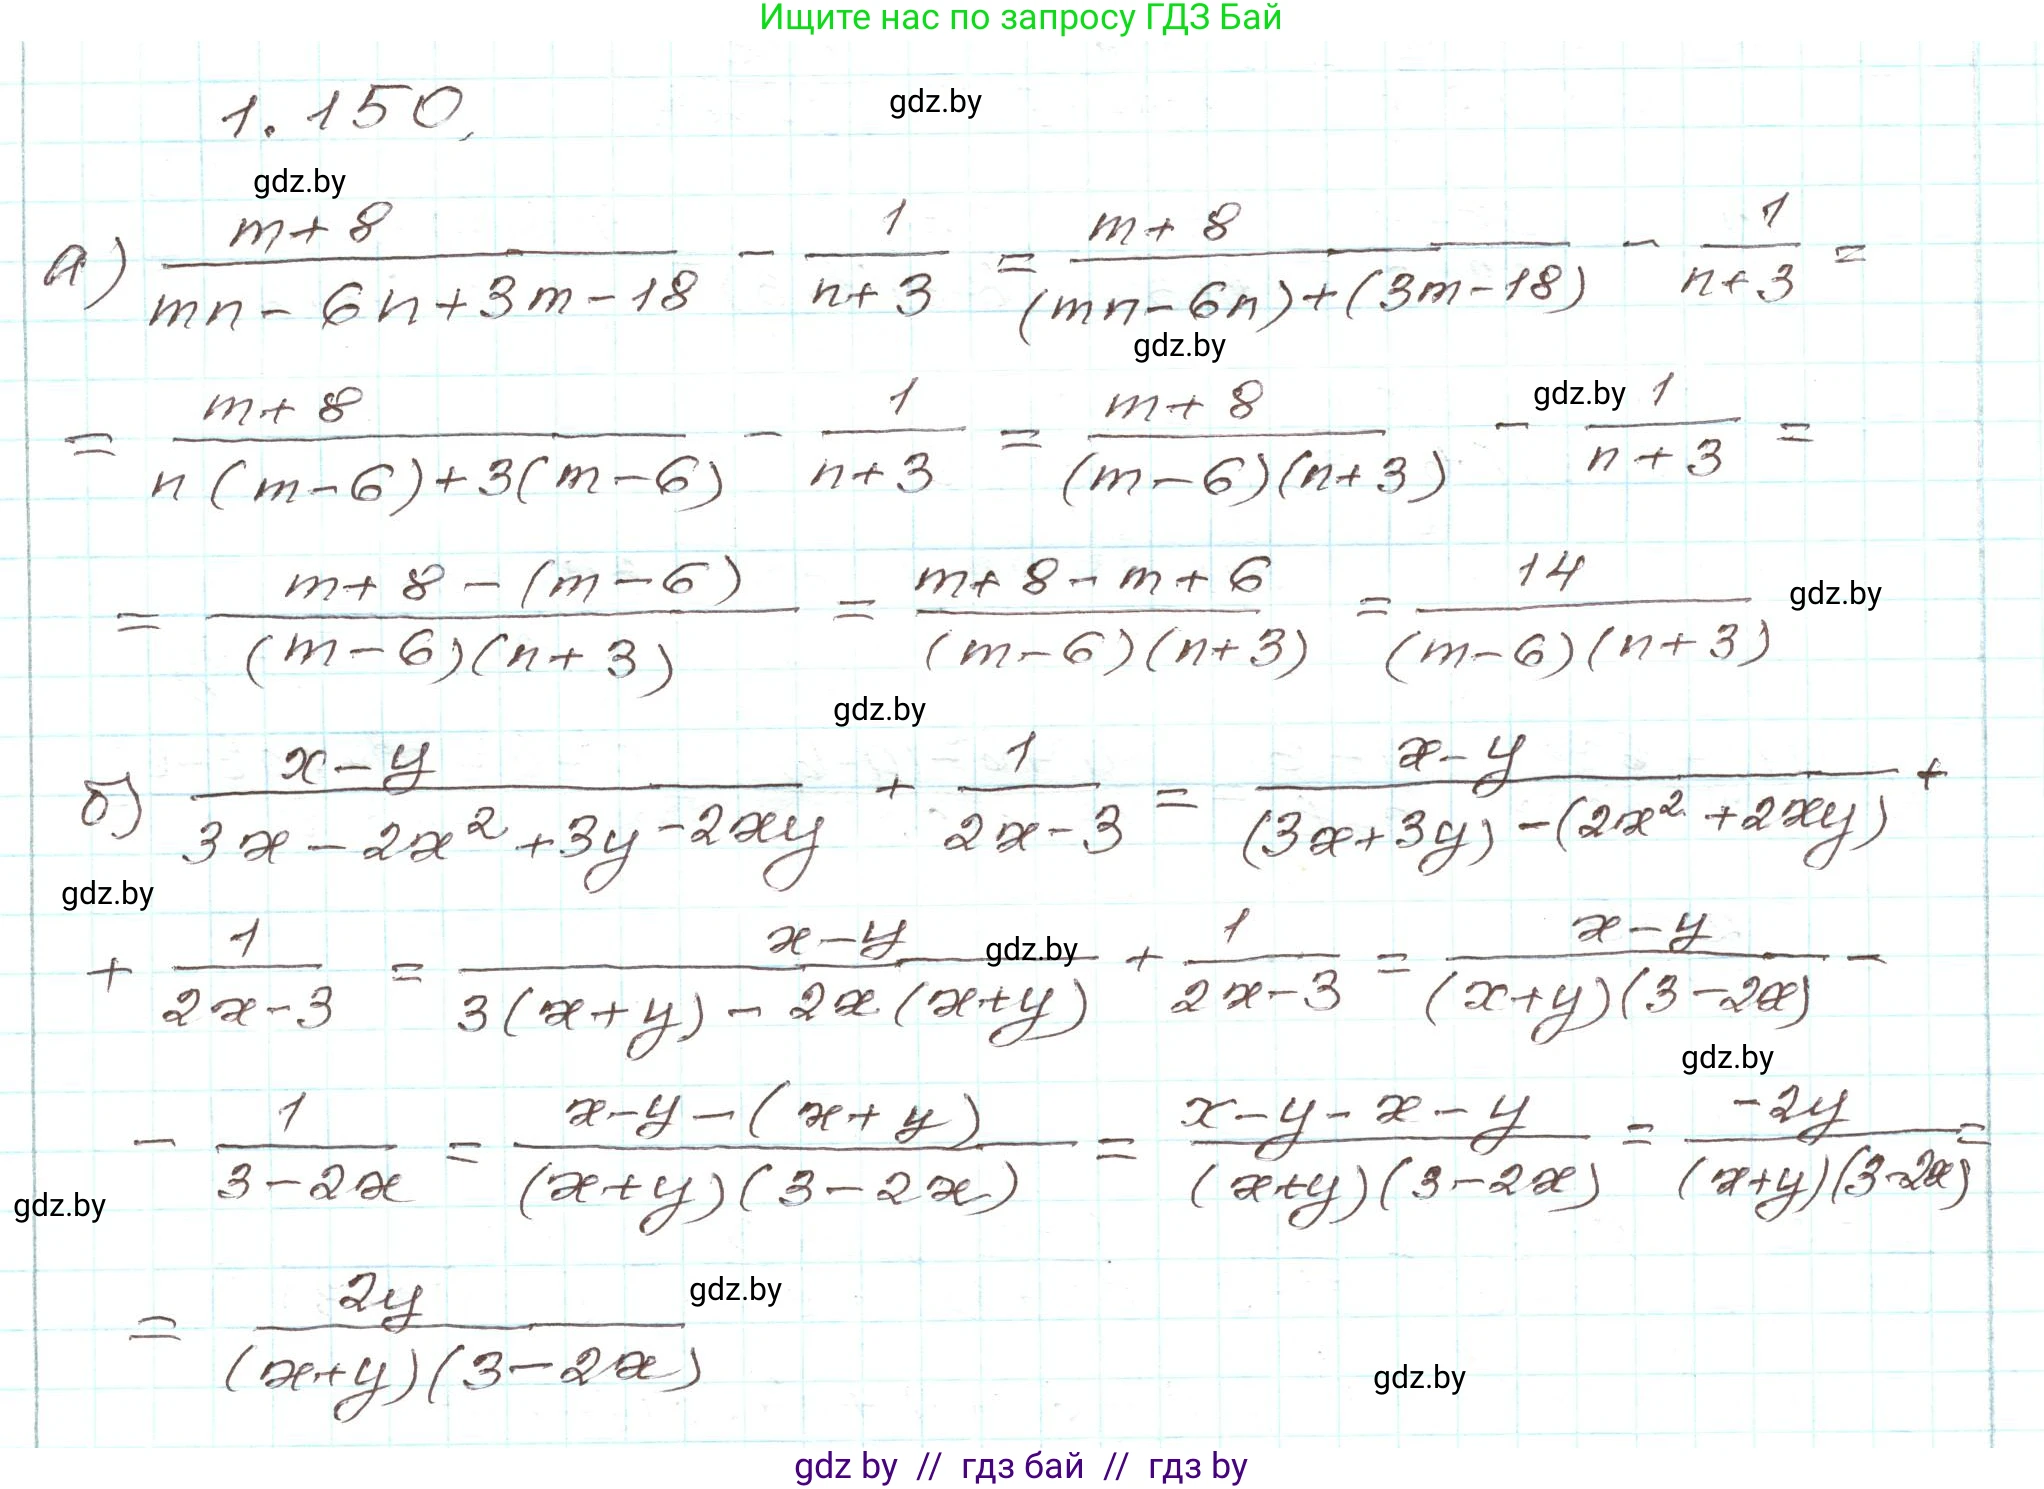 Ищите нас по запросу ГДЗ Бай
1.150.
gdz.by
gdz.by
а) (m+8)/(mn-6n+3m-18) - 1/(n+3) = (m+8)/((mn-6n)+(3m-18)) - 1/(n+3) =
gdz.by
= (m+8)/(n(m-6)+3(m-6)) - 1/(n+3) = (m+8)/((m-6)(n+3)) - 1/(n+3) =
gdz.by
= (m+8-(m-6))/((m-6)(n+3)) = (m+8-m+6)/((m-6)(n+3)) = 14/((m-6)(n+3))
gdz.by
gdz.by
б) (x-y)/(3x-2x²+3y-2xy) + 1/(2x-3) = (x-y)/((3x+3y)-(2x²+2xy)) +
gdz.by
+ 1/(2x-3) = (x-y)/(3(x+y)-2x(x+y)) + 1/(2x-3) = (x-y)/((x+y)(3-2x)) -
gdz.by
gdz.by
- 1/(3-2x) = (x-y-(x+y))/((x+y)(3-2x)) = (x-y-x-y)/((x+y)(3-2x)) = (-2y)/((x+y)(3-2x)) =
gdz.by
= 2y/((x+y)(3-2x))
gdz.by
gdz.by
gdz by // гдз бай // гдз by